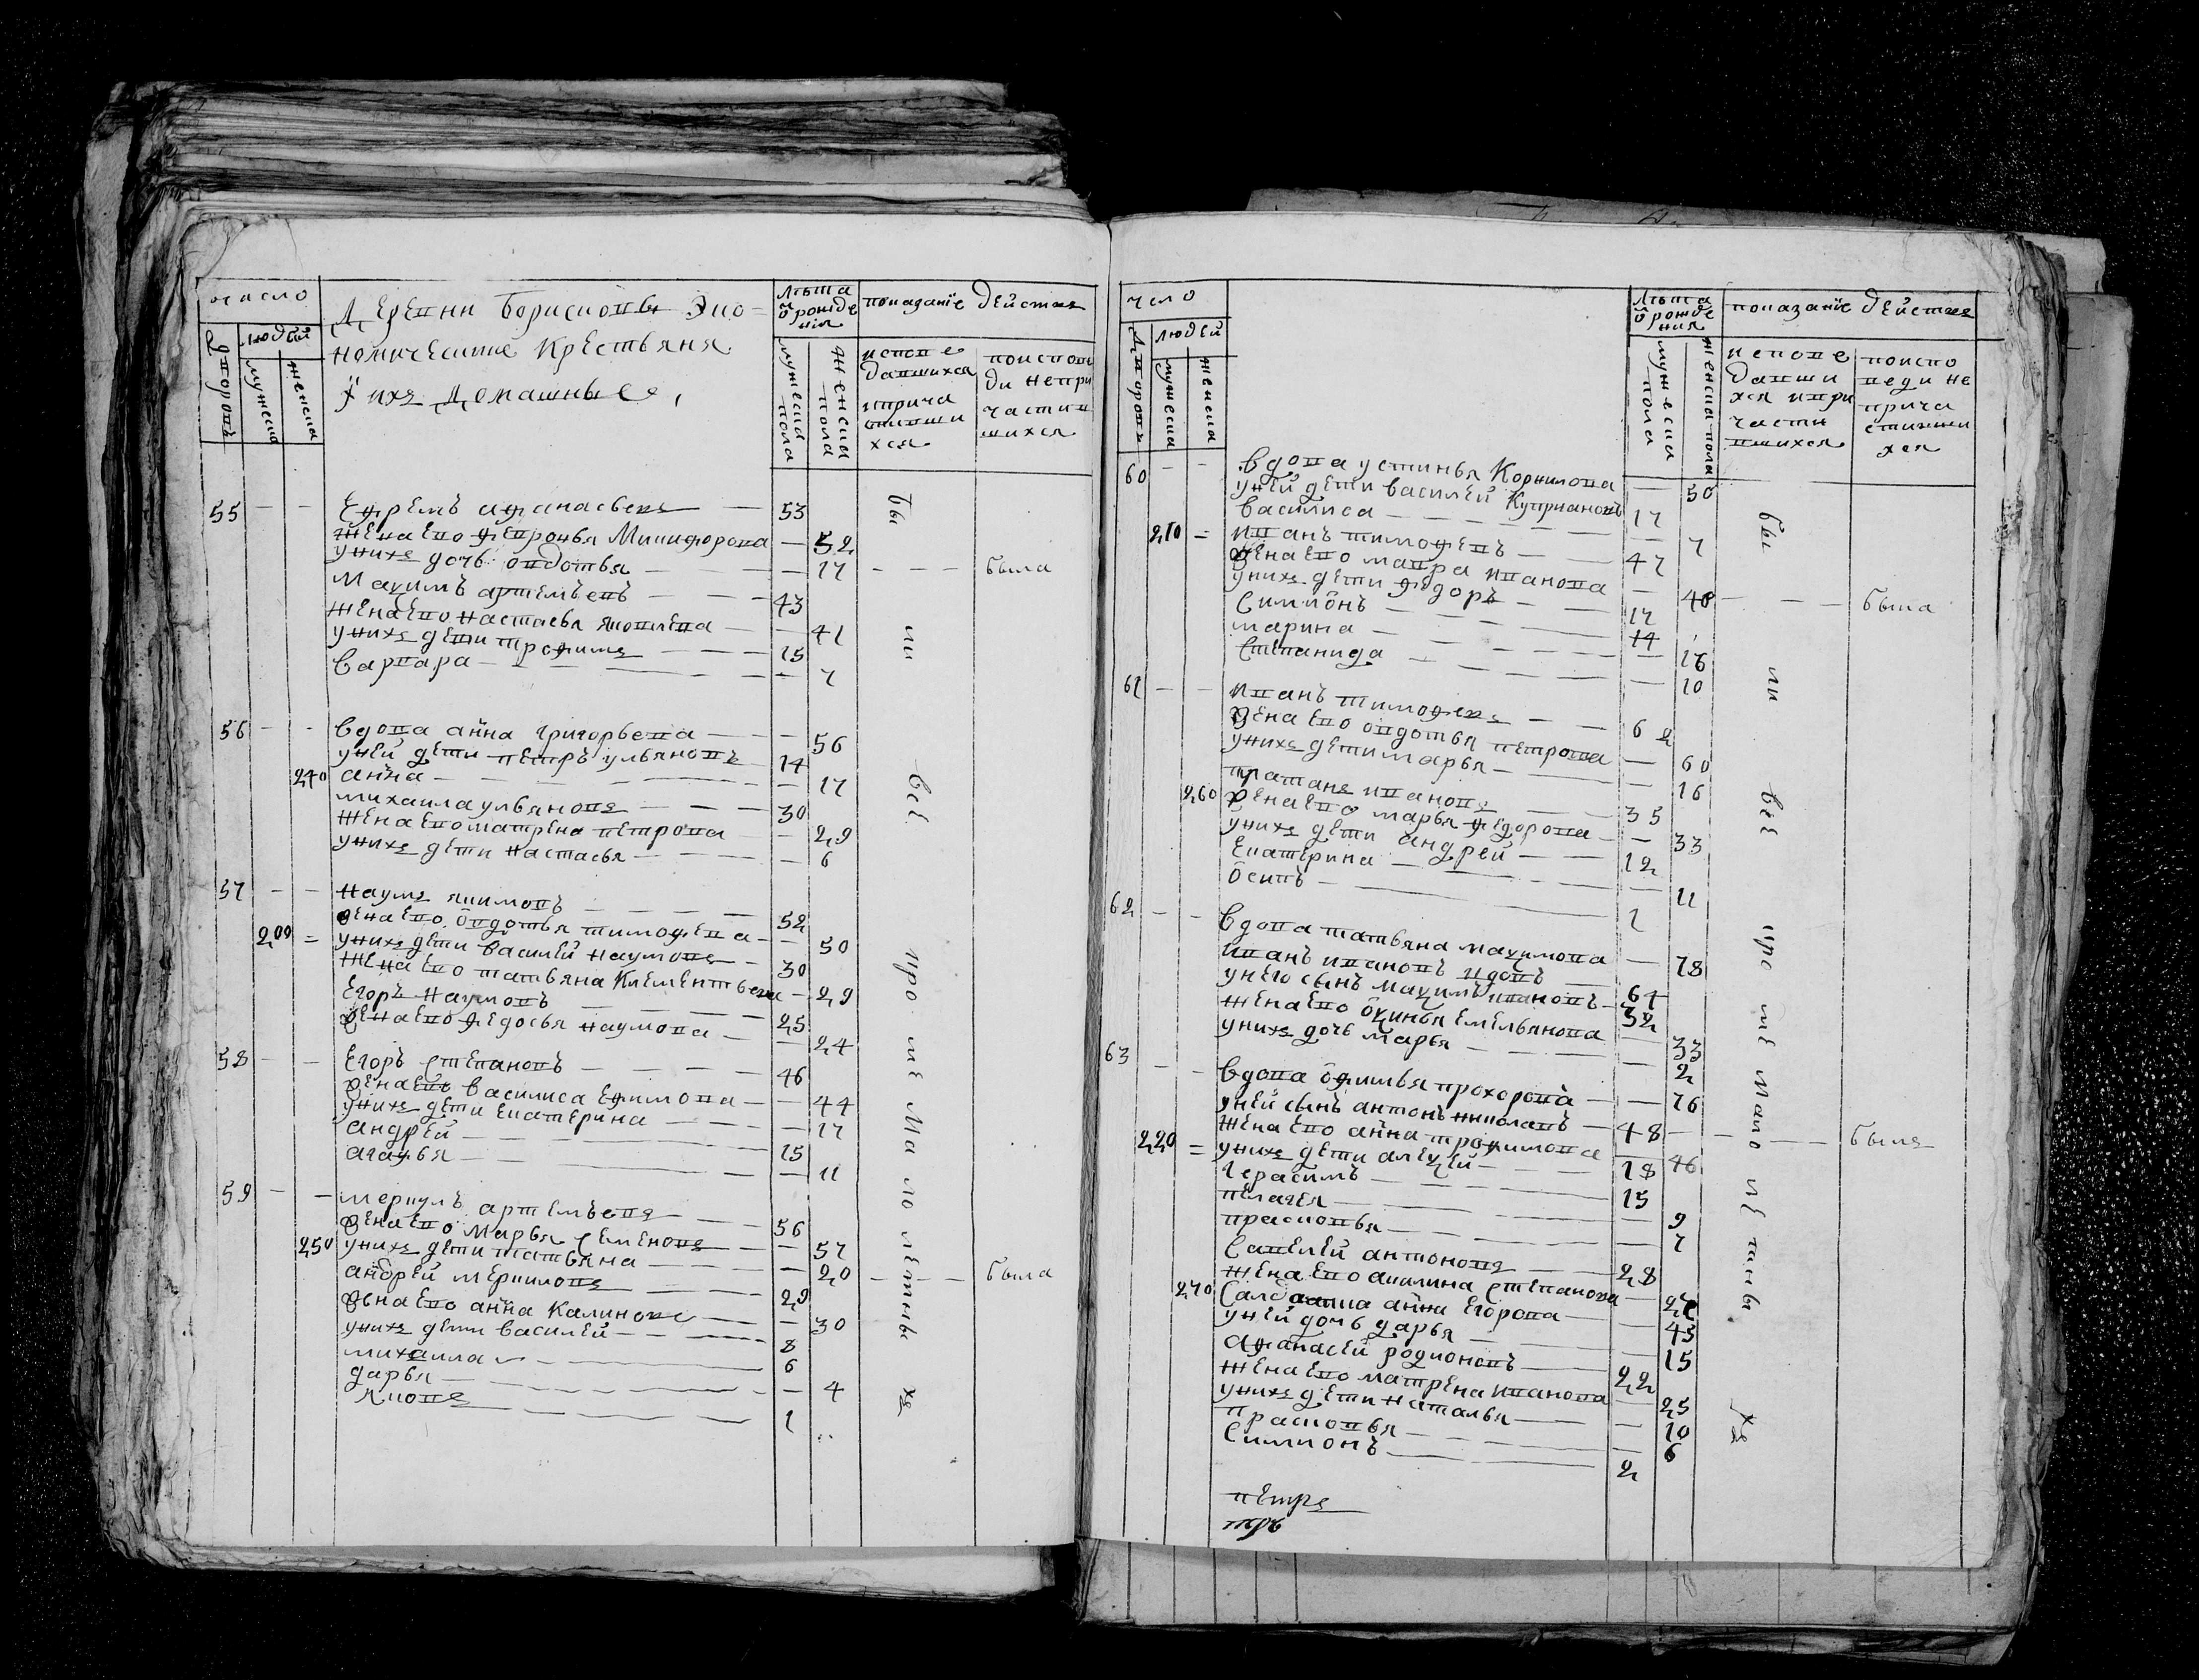 число
Деревни Борисковы Эко=
номические Крестьяня
и ихъ Домашные,
лѣта
ѿ рожде
нiя
показанiе действа
дворовъ
людей
мужеска
женска
мужеска пола
женска пола
испове
давшихся
и прича
стивши
хся
по испове
ди непри
части в
шихся
55 — — Ефремъ афанасьевъ — 53
жена ево февронья Микифорова — 52
у нихъ дочь овдотья — — 17 — — — была
Маѯимъ артемьевъ — — 43
жена ево настасья яковлева — — 41
у нихъ дети трофимъ — — 15
варвара — — — — — 7
56 — - вдова анна григорьева — — 56
у ней дети петръ ульяновъ — 14
240 анна — — — — — 17
михаила ульяновъ — — — 30
жена ево матрена петрова — 29
у нихъ дети настасья — — — 6
57 — — наумъ якимовъ — — — 52
200 = жена ево овдотья тимофева — — 50
у нихъ дети василей наумовъ — 30
жена ево татьяна Клементьева — 29
Егоръ наумовъ — — — 25
жена ево федосья наумова — — 24
58 — — Егоръ степановъ — — — 46
жена ево василиса Ефимова — — 44
у нихъ дети Екатерина — — — 17
андрей — — — — 15
агафья — — — — 11
59 — — меркулъ артемьевъ — — 56
жена ево марья семенова — — 57
250 у нихъ дети татьяна — — — 20 — — — была
андрей меркуловъ — — — 29
жена ево анна Калинова — — 30
у нихъ дети василей — — — 8
михаила — — — 6
дарья — — — — 4
яковъ — — — — 1
бы ли все кро ме Ма ло летны хъ
число
лѣта
ѿ рожде
ния
показанiе действа
дворовъ
людей
мужеска
женска
мужеска пола
женска пола
испове
давши
хся и при
части
вшихся
по испо
веди не
прича
стивши
хся
60 — — вдова устинья Корнилова — 50
у ней дети василей Куприановъ 17
василиса — — — — 7
210 = иванъ тимофевъ — — 47
жена ево мавра иванова — 48 — — — была
у нихъ дети федоръ — — 17
симионъ — — — — 14
марина — — — — 16
степанида — — — — 10
61 — — иванъ тимофевъ — — 62
жена ево овдотья петрова — 60
у нихъ дети марья — — — 16
иванова — — 35
260 жена ево марья федорова — — 33
у нихъ дети андрей — — 12
Екатерина — — — — 11
осипъ — — — — 1
62 — - вдова татьяна маѯимова — 78
иванъ ивановъ — 64
у него сынъ маѯимъ ивановъ — 32
жена ево оѯинья Емельянова — 33
у нихъ дочь марья — — — 2
63 — — вдова офимья прохорова — — 76
у ней сынъ антонъ николаевъ — 48 — — — — былъ
жена ево анна трофимова — 46
220 = у нихъ дети алеѯей — — 18
герасимъ — — — — 15
пелагея — — — — 9
прасковья — — — — 7
савелей антоновъ — — 28
жена ево акилина степанова — 27
270 салдатка анна Егорова — — 43
у ней дочь дарья — — — 15
афанасей родионовъ — — 22
жена ево матрена иванова — 25
у нихъ дети наталья — — 10
прасковья — — — — 6
симионъ — — — 2
петръ
бы ли все кро ме мало летны хъ